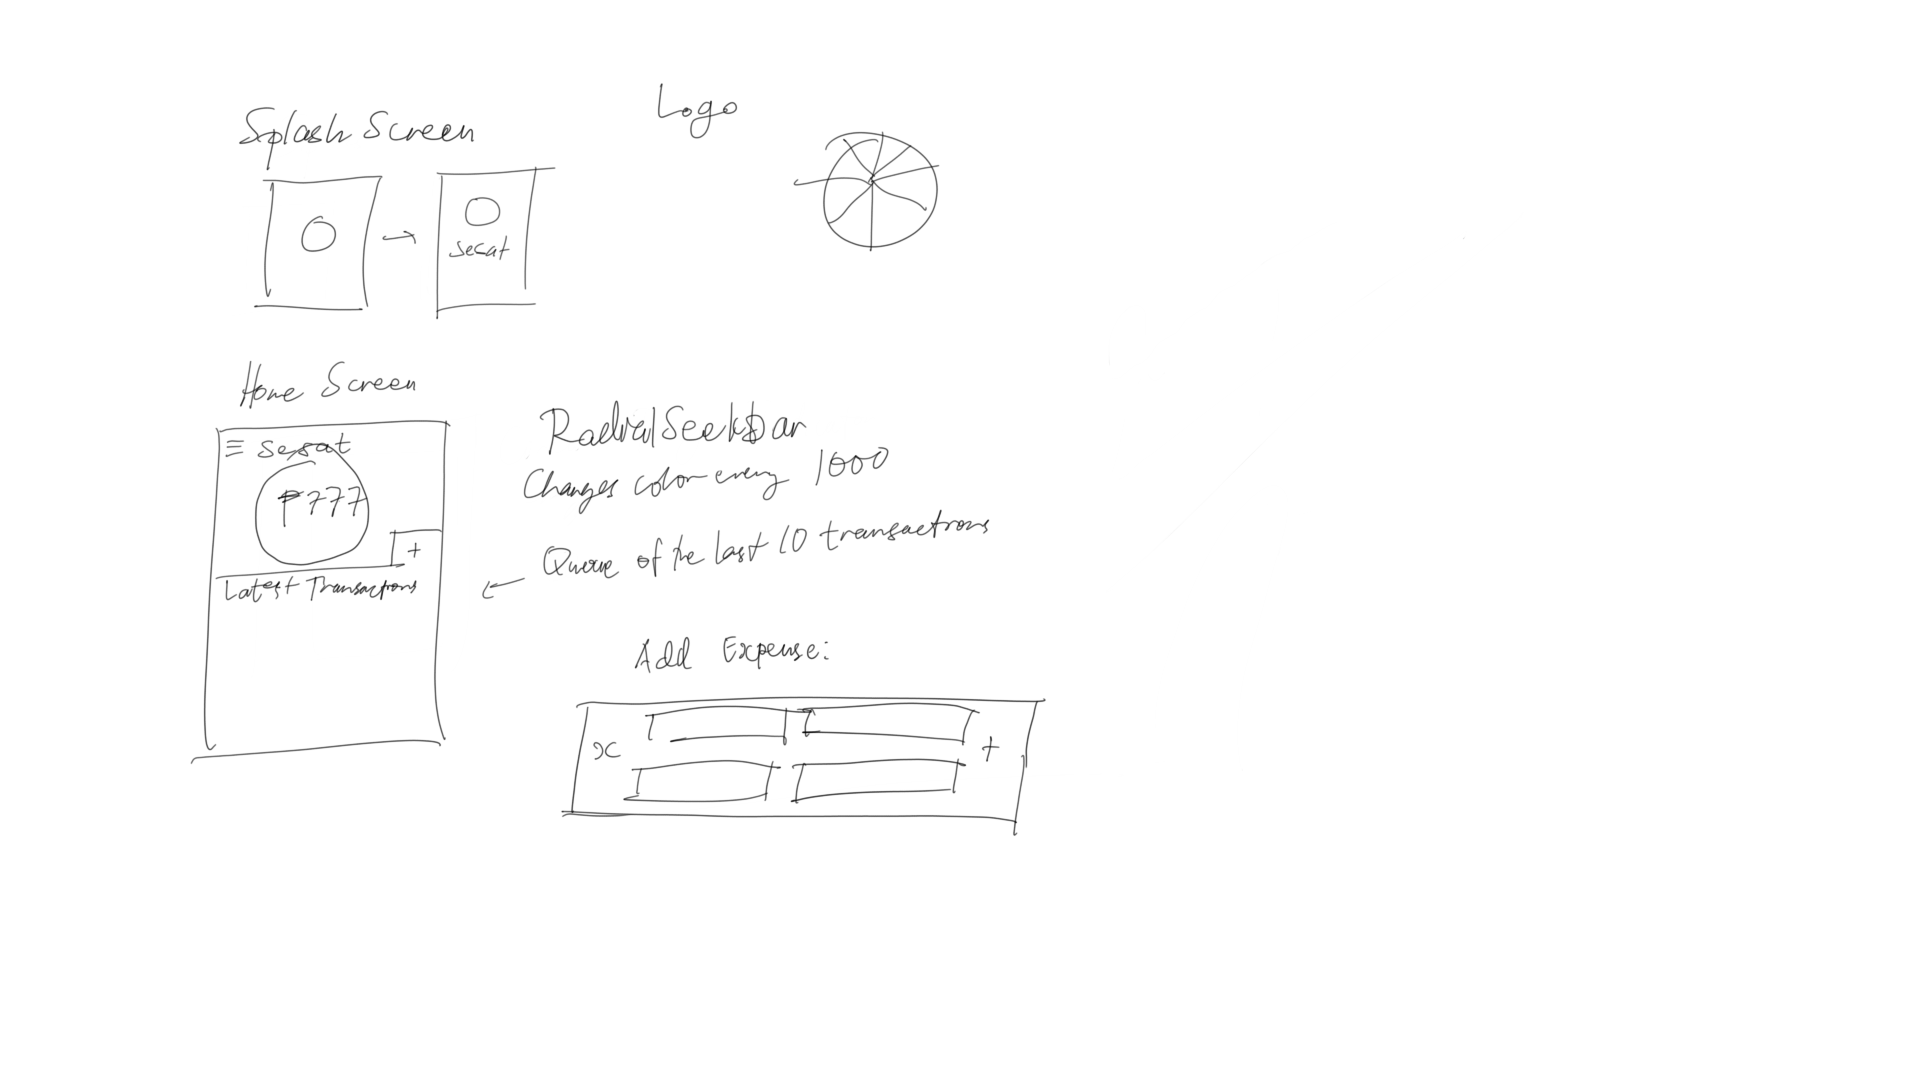 Logo
Splash Screen
secat
Home Screen
≡ Sesat
₱777
+
Latest Transactions
RadialSeekbar
Changes color every 1000
Queue of the last 10 transactions
Add Expense:
x +